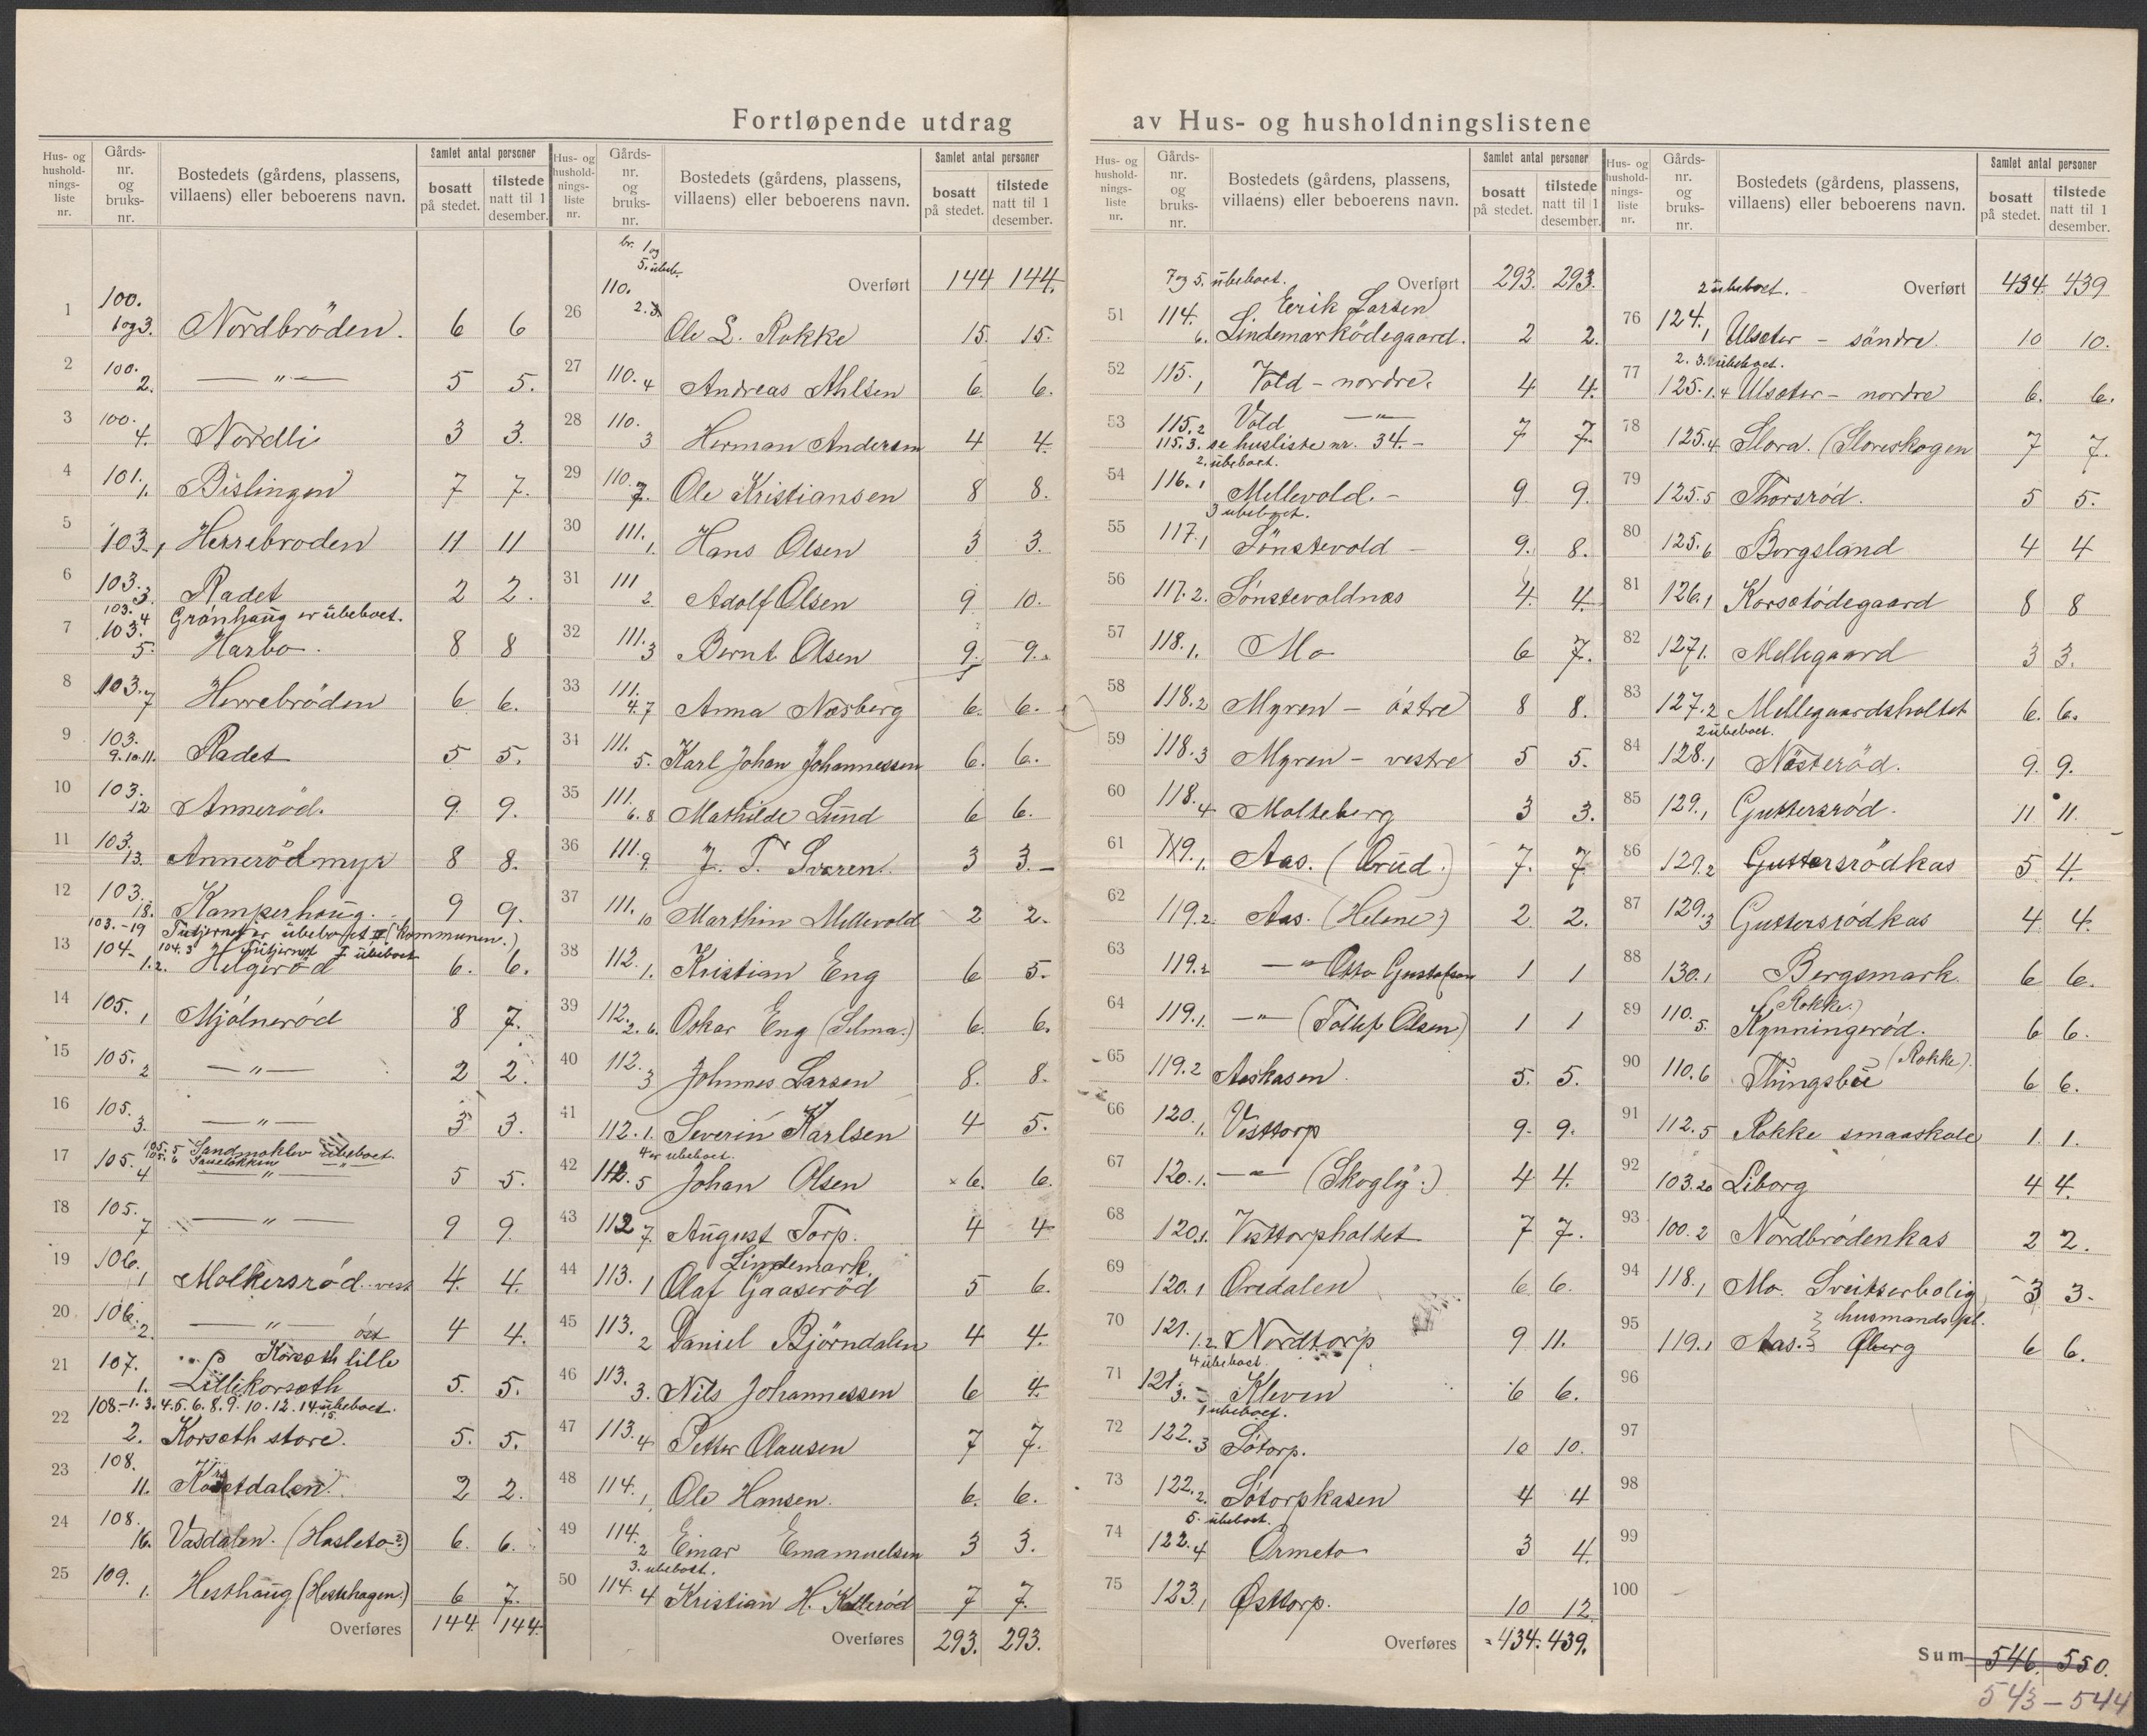 Fortløpende utdrag av Hus- og husholdningslistene
Hus- og hushold-nings-liste nr.
Gårds-nr. og bruks-nr.
Bostedets (gårdens, plassens, villaens) eller beboerens navn.
Samlet antal personer
bosatt på stedet.
tilstede natt til 1 desember.
1 100. 1og3. Nordbröden. 6 6
2 100. 2. — " — 5 5.
3 100. 4. Nordli 3 3.
4 101. 1. Bislingen 7 7.
5 103. 1 Herrebroden 11 11
6 103. 3. Radet 2 2.
103. 4 Grönhaug er ubeboet.
7 103. 5. Harbo. 8 8
8 103. 7 Herrebröden 6 6.
9 103. 9.10.11. Radet 5 5.
10 103. 12 Anneröd. 9 9.
11 103. 13. Annerödmyr 8 8.
12 103. 18. Kamperhaug. 9 9.
103.-19 Tutjernet er ubeboet (Kommunen.)
104.3 Tutjernet I ubeboet
13 104. 1.2. Helgeröd 6. 6.
14 105. 1 Mjölneröd 8 7.
15 105. 2 — " — 2 2.
16 105. 3. — " — 3 3.
105. 5 Sandmoklev ubeboet.
105. 6 — " —
17 105. 4 — " — 5 5.
18 105. 7 — " — 9 9.
19 106. 1 Molkersröd vest 4. 4.
20 106. 2. — " — öst 4 4.
Korseth lille
21 107. 1. Lillikorseth 5. 5.
108.-1.3.4.5.6.8.9.10.12.14.15. ubeboet.
22 2. Korseth store. 5. 5.
23 108. 11. Korsetdalen. 2 2.
24 108. 16. Vasdalen. (Hasleto?) 6. 6.
25 109. 1. Hesthaug (Hestehagen.) 6 7.
Overføres 144. 144.
br. 1 og 5. ubeb.
Overført 144 144.
26 110. 2.3. Ole L. Rokke 15. 15.
27 110. 4 Andreas Ahlsen 6. 6.
28 110. 3 Herman Andersen 4 4.
29 110. 7. Ole Kristiansen 8 8.
30 111. 1. Hans Olsen 3 3.
31 111 2. Adolf Olsen 9 10.
32 111. 3 Bernt Olsen 9. 9.
33 111. 4.7 Anna Næsberg 6. 6.
34 111. 5. Karl Johan Johannessen 6. 6.
35 111. 6.8 Mathilde Lund 6 6.
36 111. 9. J. T. Sværen. 3 3.-
37 111. 10 Marthin Mellevold 2 2.
38 112. 1. Kristian Eng 6 5.
39 112. 2.6. Oskar Eng (Selma.) 6. 6.
40 112. 3 Johnnes Larsen 8. 8.
41 112. 1. Severin Karlsen 4 5.
4 er ubeboet.
42 112. 5 Johan Olsen 6. 6.
43 112 7. August Torp. 4 4
Lindemark.
44 113. 1 Olaf Gaaseröd 5 6.
45 113. 2 Daniel Björndalen 4 4.
46 113. 3. Nils Johannessen 6 4.
47 113. 4 Petter Clausen 7 7.
48 114. 1 Ole Hansen. 6. 6.
49 114. 2 Einar Emanuelsen 3 3.
3. ubeboet.
50 114. 4 Kristian H. Kalleröd 7 7.
Overføres 293. 293.
7 og 5. ubeboet.
Overført 293. 293.
Eerik Larsen
51 114. 6. Lindemarködegaard. 2 2.
52 115. 1 Vold - nordre. 4 4.
53 115. 2 Vold — " — 7 7.
115. 3. se husliste nr. 34.-
2. ubeboet.
54 116. 1 Mellevold. - 9 9.
3 ubeboet.
55 117. 1 Sönstevold - 9. 8.
56 117. 2. Sönstevoldnæs 4. 4.
57 118. 1. Mo 6 7.
58 118. 2 Myren - östre 8 8.
59 118. 3 Myren - vestre 5 5.
60 118. 4 Molteberg 3 3.
61 119. 1. Aas. (Ørud.) 7. 7
62 119. 2. Aas. (Helene) 2 2.
63 119. 2 — " Otto Gustafson 1 1
64 119. 1. — " — (Tollef Olsen) 1 1
65 119. 2 Aaskasen 5. 5.
66 120. 1. Visttorp 9. 9.
67 120. 1. — " — (Skogly.) 4 4.
68 120. 1. Visttorpholtet 7 7.
69 120. 1 Øredalen 6 6.
70 121. 1.2. Nordtorp 9 11.
4 ubeboet.
71 121. 3. - Kleven 6 6.
1 ubeboet.
72 122. 3 Sötorp. 10 10.
73 122. 2. Sötorpkasen 4 4
5. ubeboet.
74 122. 4 Ormeto 3 4.
75 123. 1 Østtorp. 10 12.
Overføres 434. 439.
2 ubeboet.
Overført 434 439
76 124. 1 Ulseter - söndre. 10 10.
2. 3. ubeboet.
77 125. 1.4 Ulseter - nordre 6. 6.
78 125. 4 Slora. (Sloreskogen 7 7.
79 125. 5 Thorsröd. 5 5.
80 125. 6 Borgsland 4 4
81 126. 1 Korsetödegaard 8 8
82 127. 1. Mellegaard 3 3.
83 127. 2 Mellegaardsholtet 6. 6.
2 ubeboet.
84 128. 1 Nösteröd. 9. 9.
85 129. 1 Guttersröd. 11 11.
86 129. 2 Guttersrödkas 5 4.
87 129. 3 Guttersrödkas 4 4.
88 130. 1 Bergsmark. 6 6.
(Rokke.)
89 110. 5. Kynningeröd. 6 6.
90 110. 6 Thingsbu (Rokke). 6 6.
91 112. 5 Rokke smaaskole 1. 1.
92 103. 20 Liborg 4 4.
93 100. 2 Nordbrödenkas 2 2.
94 118. 1 Mo. Sveitserbolig 3 3.
husmandspl.
95 119. 1 Aas. Öberg 6 6.
96
97
98
99
100
Sum 546. 550.
543 - 544